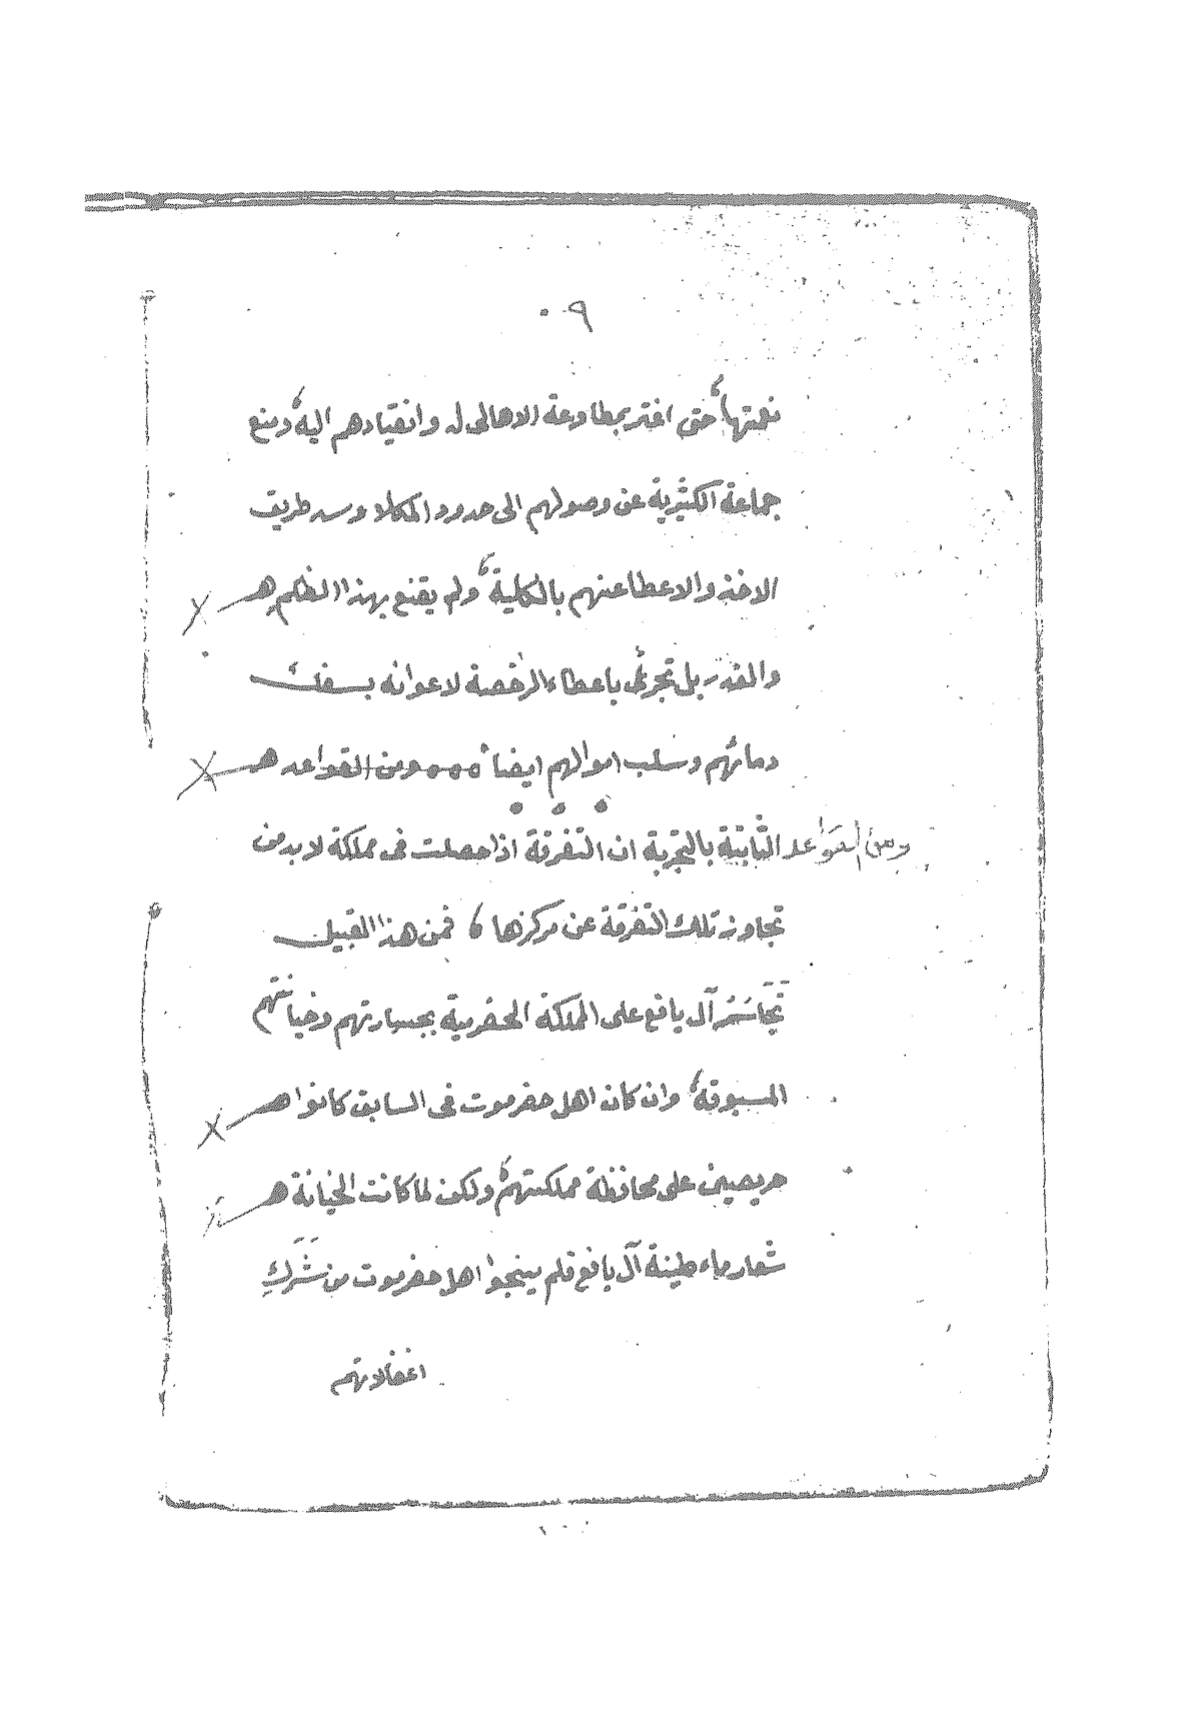 ٠٩
نعمتها، حتى اغتر بمطاوعة الاهالى له وانقيادهم اليه، ومنع
جماعة الكثيرية عن وصولهم الى حدود المكلا وسد طريق
الاخذ والاعطا عنهم بالكلية، ولم يقنع بهذا الظلم هـ
والغدر بل تجرئى باعطاء الرخصة لاعوانه بسفك
دمائهم وسلب اموالهم ايضا ومن القواعد هـ
ومن القواعد الثابتة بالتجربة ان التفرقة اذا حصلت فى مملكة لا بد من
تجاوز تلك التفرقة عن مركزها، فمن هذا القبيل
تَجَاسَر آل يافع على المملكة الحضرمية بجسارتهم وخيانتهم
المسبوقة، وان كان اهل حضرموت فى السابق كانوا هـ
حريصين على محافظة مملكتهم، ولكن لما كانت الخيانة هـ
شعار ماء طينة آل يافع فلم ينجوا اهل حضرموت من شَرَكِ
اغفالاتهم